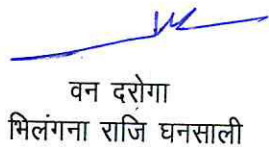 वन दरोगा
भिलंगना राजि घनसाली